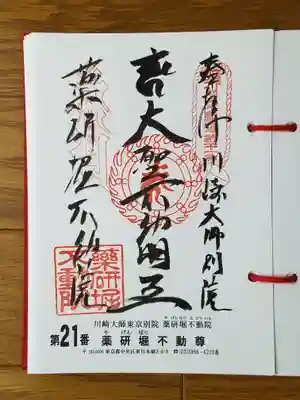 奉拝 川崎大師別院
大聖不動明王
薬研堀不動院
薬研堀
不動院
川崎大師東京別院 薬研堀不動院
や げん ぼり
第21番 薬研堀不動尊
東京都中央区東日本橋2-6-8 ☎(03)3866-6220番